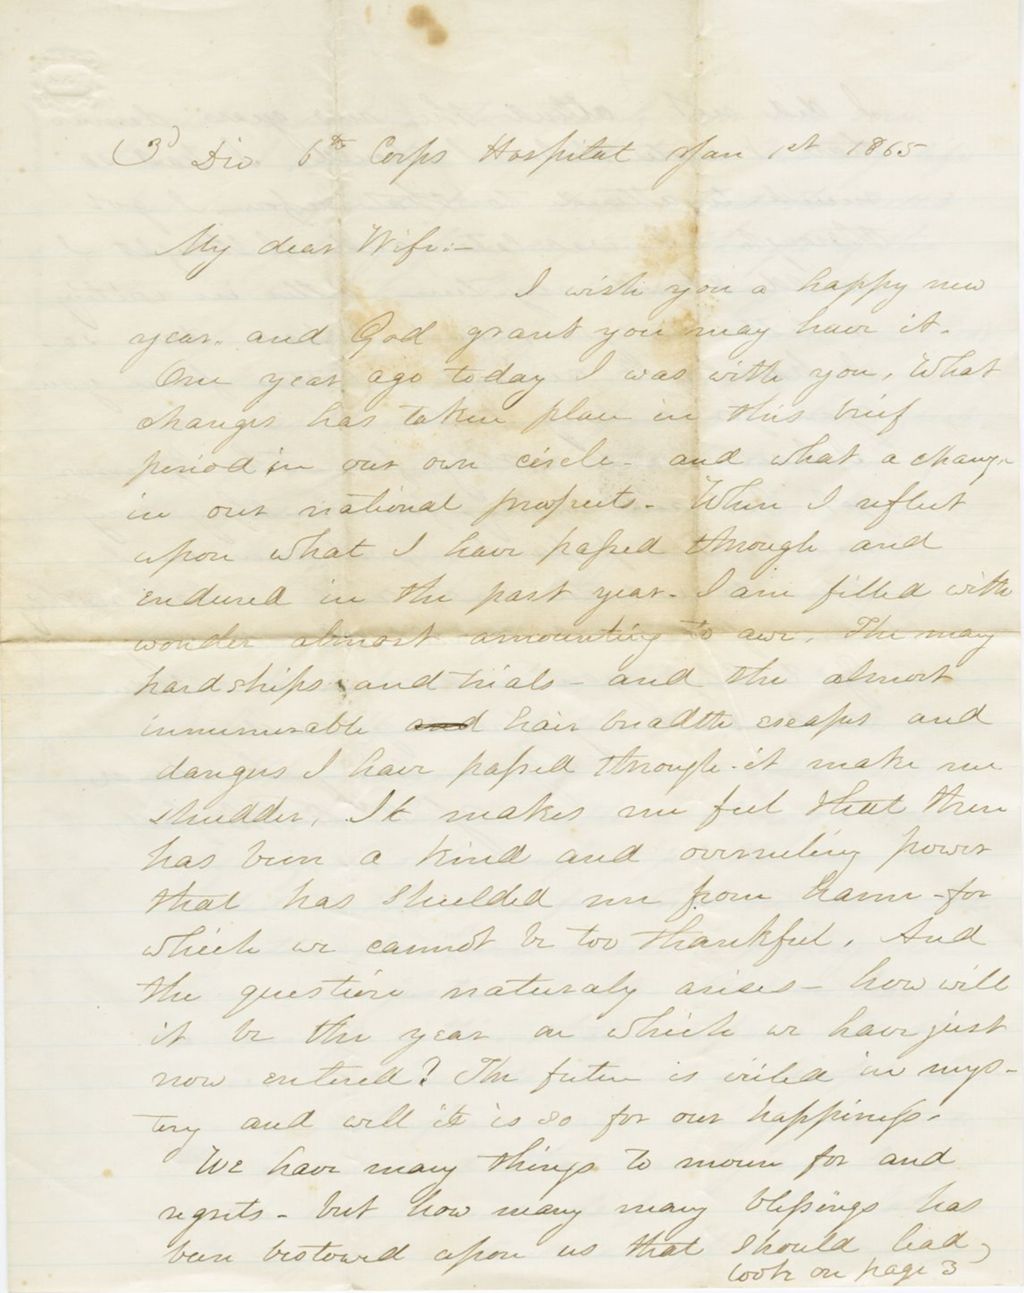 3d Div 6th Corps Hospital Jan 1st 1865
My dear Wife:-
I wish you a happy new
year. and God grant you may have it.
One year ago today I was with you, What
changes has taken place in this brief
period in our own circle - and what a change
in our national prospects - When I reflect
upon what I have passed through and
endured in the past year - I am filled with
wonder almost amounting to awe. The many
hardships and trials - and the almost
innumerable and hair breadth escapes and
dangers I have passed through - it make me
shudder. It makes me feel that there
has been a kind and overruling power
that has sheelded me from harm - for
which we cannot be too thankful. And
the question naturaly arises - how will
it be the year on which we have just
now entered? The future is veiled in mys-
tery and well it is so for our happiness.
We have many things to mourn for and
regrets - but how many many blessings has
been bestowed upon us that should lead
look on page 3